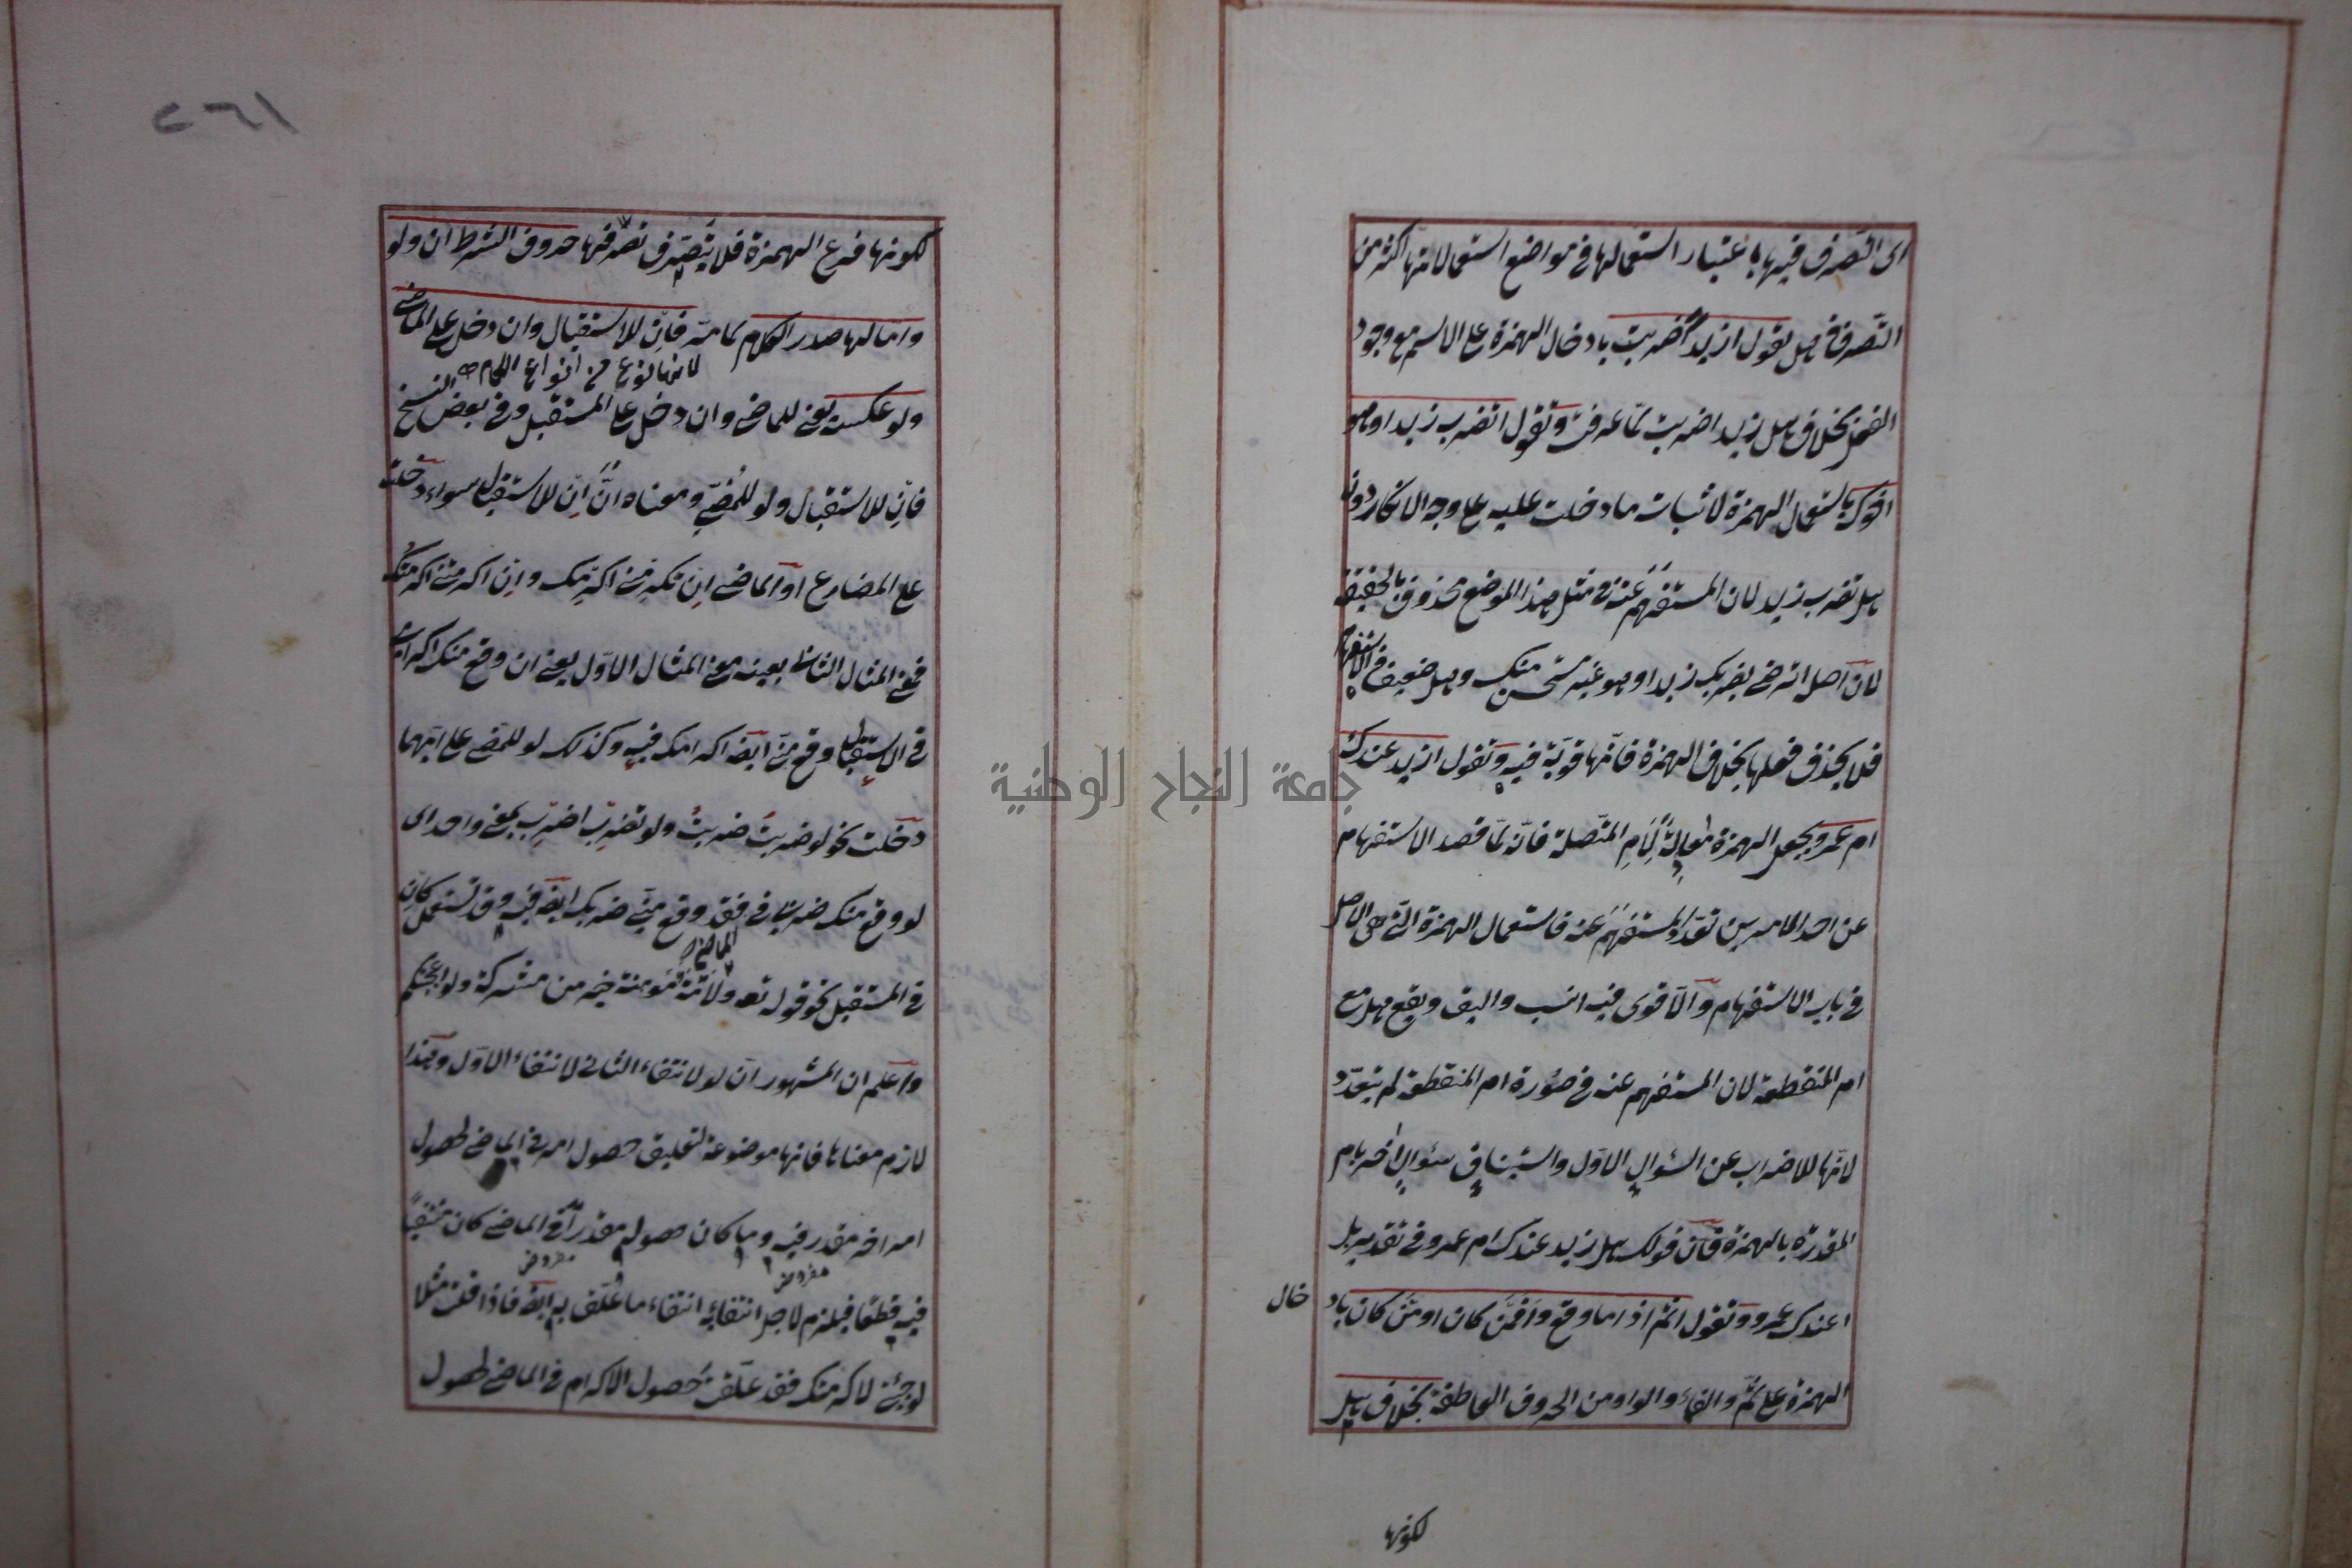 اى التصرف فيها باعتبار استعمالها فى مواضع استعمالاتها اكثر من
التصرف فى هل تقول ازيدا ضربت بادخال الهمزة على الاسم مع وجود
الفعل بخلاف هل زيدا ضربت لما عرفت وتقول اتضرب زيدا وهو
اخوك باستعمال الهمزة لاثبات ما دخلت عليه على وجه الانكار دون
هل تضرب زيد لان المستفهم عنه فى مثل هذا الموضع محذوف بالحقيقة
لان اصل اترضى بضربك زيدا وهو غير مستحسن منك وهل ضعيف فى الاستفهام
فلا يحذف فعلها بخلاف الهمزة فانها قوية فيه وتقول ازيد عندك
ام عمرو بجعل الهمزة معادلة لام المتصلة فانه لما قصد الاستفهام
عن احد الامرين تعدد المستفهم عنه فاستعمال الهمزة التى هى الاصل
فى باب الاستفهام والاقوى فيه انسب واليق ويقع هل مع
ام المنقطعة لان المستفهم عنه فى صورة ام المنقطعة لم يتعدد
لانها للاضراب عن السؤال الاول واستيناف سؤال اخر بام
المقدرة بالهمزة فان قولك هل زيد عندك ام عمرو فى تقدير بل
اعندك عمرو وتقول اثم اذا ما وقع وافمن كان اومن كان باد
خال
الهمزة على ثم والفاء والواو من الحروف العاطفة بخلاف هل
لكونها
٢٦١
لكونها فرع الهمزة فلا يتصرف تصرفها حروف الشرط ان ولو
واما لها صدر الكلام لما مر فان للاستقبال وان دخل على الماضى
لانها نوع من انواع الكلام صح
ولو عكسه يعنى للماضى وان دخل على المستقبل وفى بعض النسخ
فان للاستقبال ولو للمضى ومعناه ان ان للاستقبال سواء دخلت
على المضارع او الماضى ان تكرمنى اكرمك وان اكرمتنى اكرمتك
فمعنى المثال الثانى بعينه معنى المثال الاول يعنى ان وقع منك اكرامى
فى الاستقبال وقع منى ايضا اكرامك فيه وكذلك لو للمضى على ايهما
دخلت نحو لو ضربت ضربت ولو تضرب اضرب بمعنى واحد اى
لو وقع منك ضربى فى الماضى فقد وقع منى ضربك ايضا فيه وقد تستعمل كان
فى المستقبل نحو قوله تعـ ولامة مؤمنة خير من مشركة ولو اعجبتكم
واعلم ان المشهور ان لو لانتفاء الثانى لانتفاء الاول وهذا
لازم معناها فانها موضوعة لتعليق حصول امر فى الماضى لحصول
امر اخر مقدر فيه وما كان حصوله مقدرا فى الماضى كان منتفيا
مفروض
مفروض
فيه قطعا فيلزم لاجل انتفائه انتفاء ما علق به ايضا فاذا قلت مثلا
لو جئتنى لاكرمتك فقد علقت حصول الاكرام فى الماضى لحصول
جامعة النجاح الوطنية